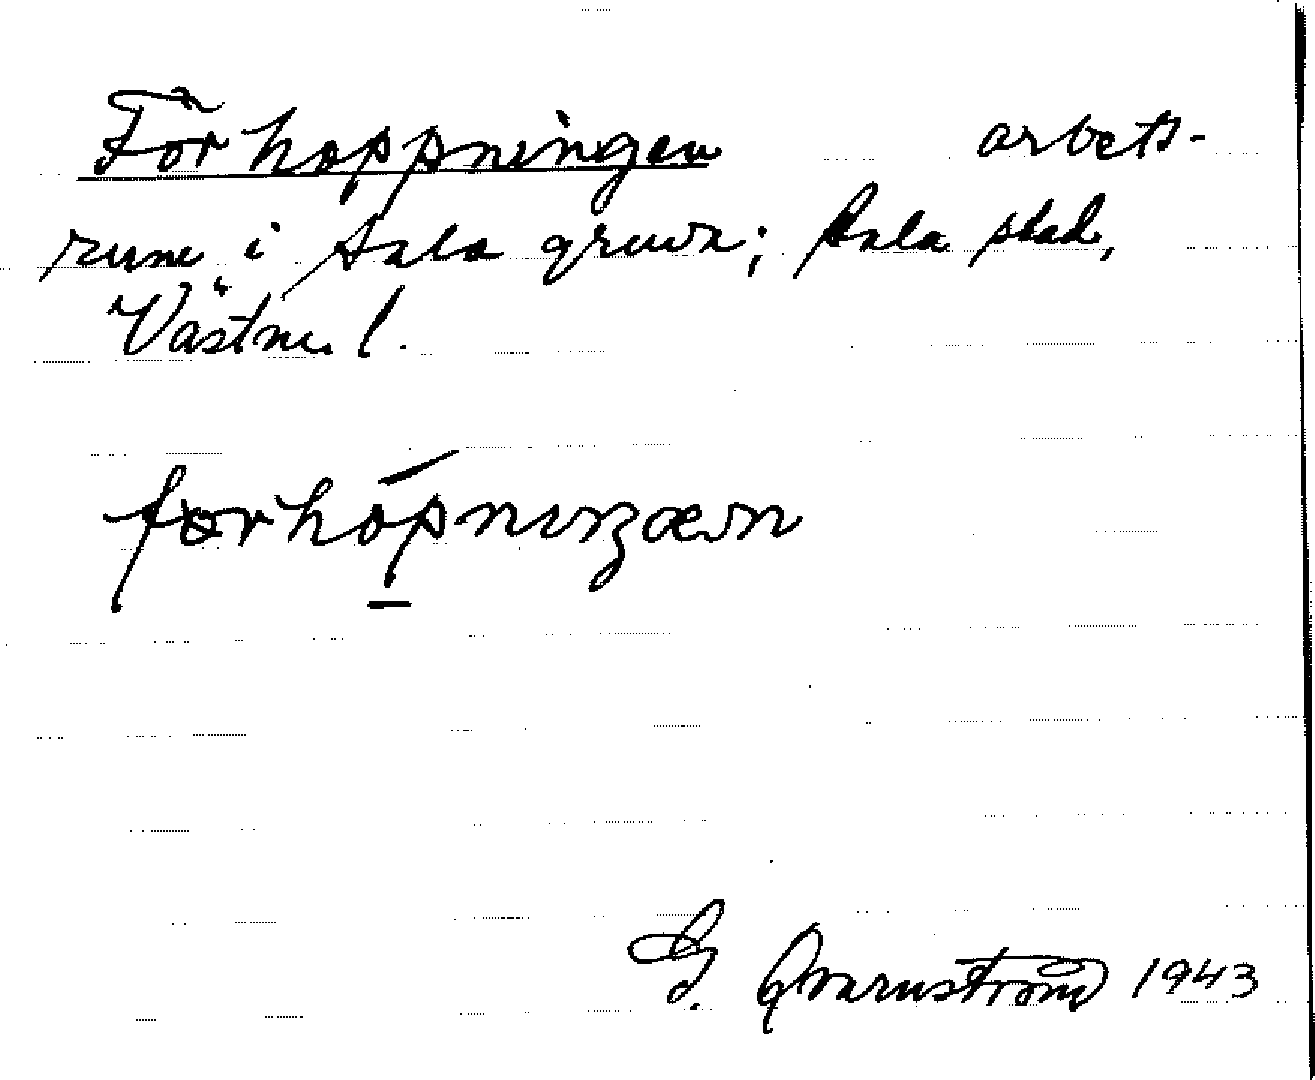 Förhoppningen arbets-
rum i Sala gruva; Sala stad,
Västm. l.
G. Qvarnström 1943